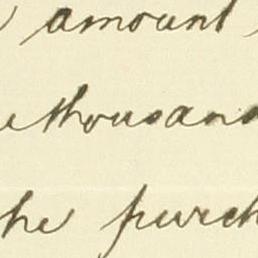 amount
thousand
the purch